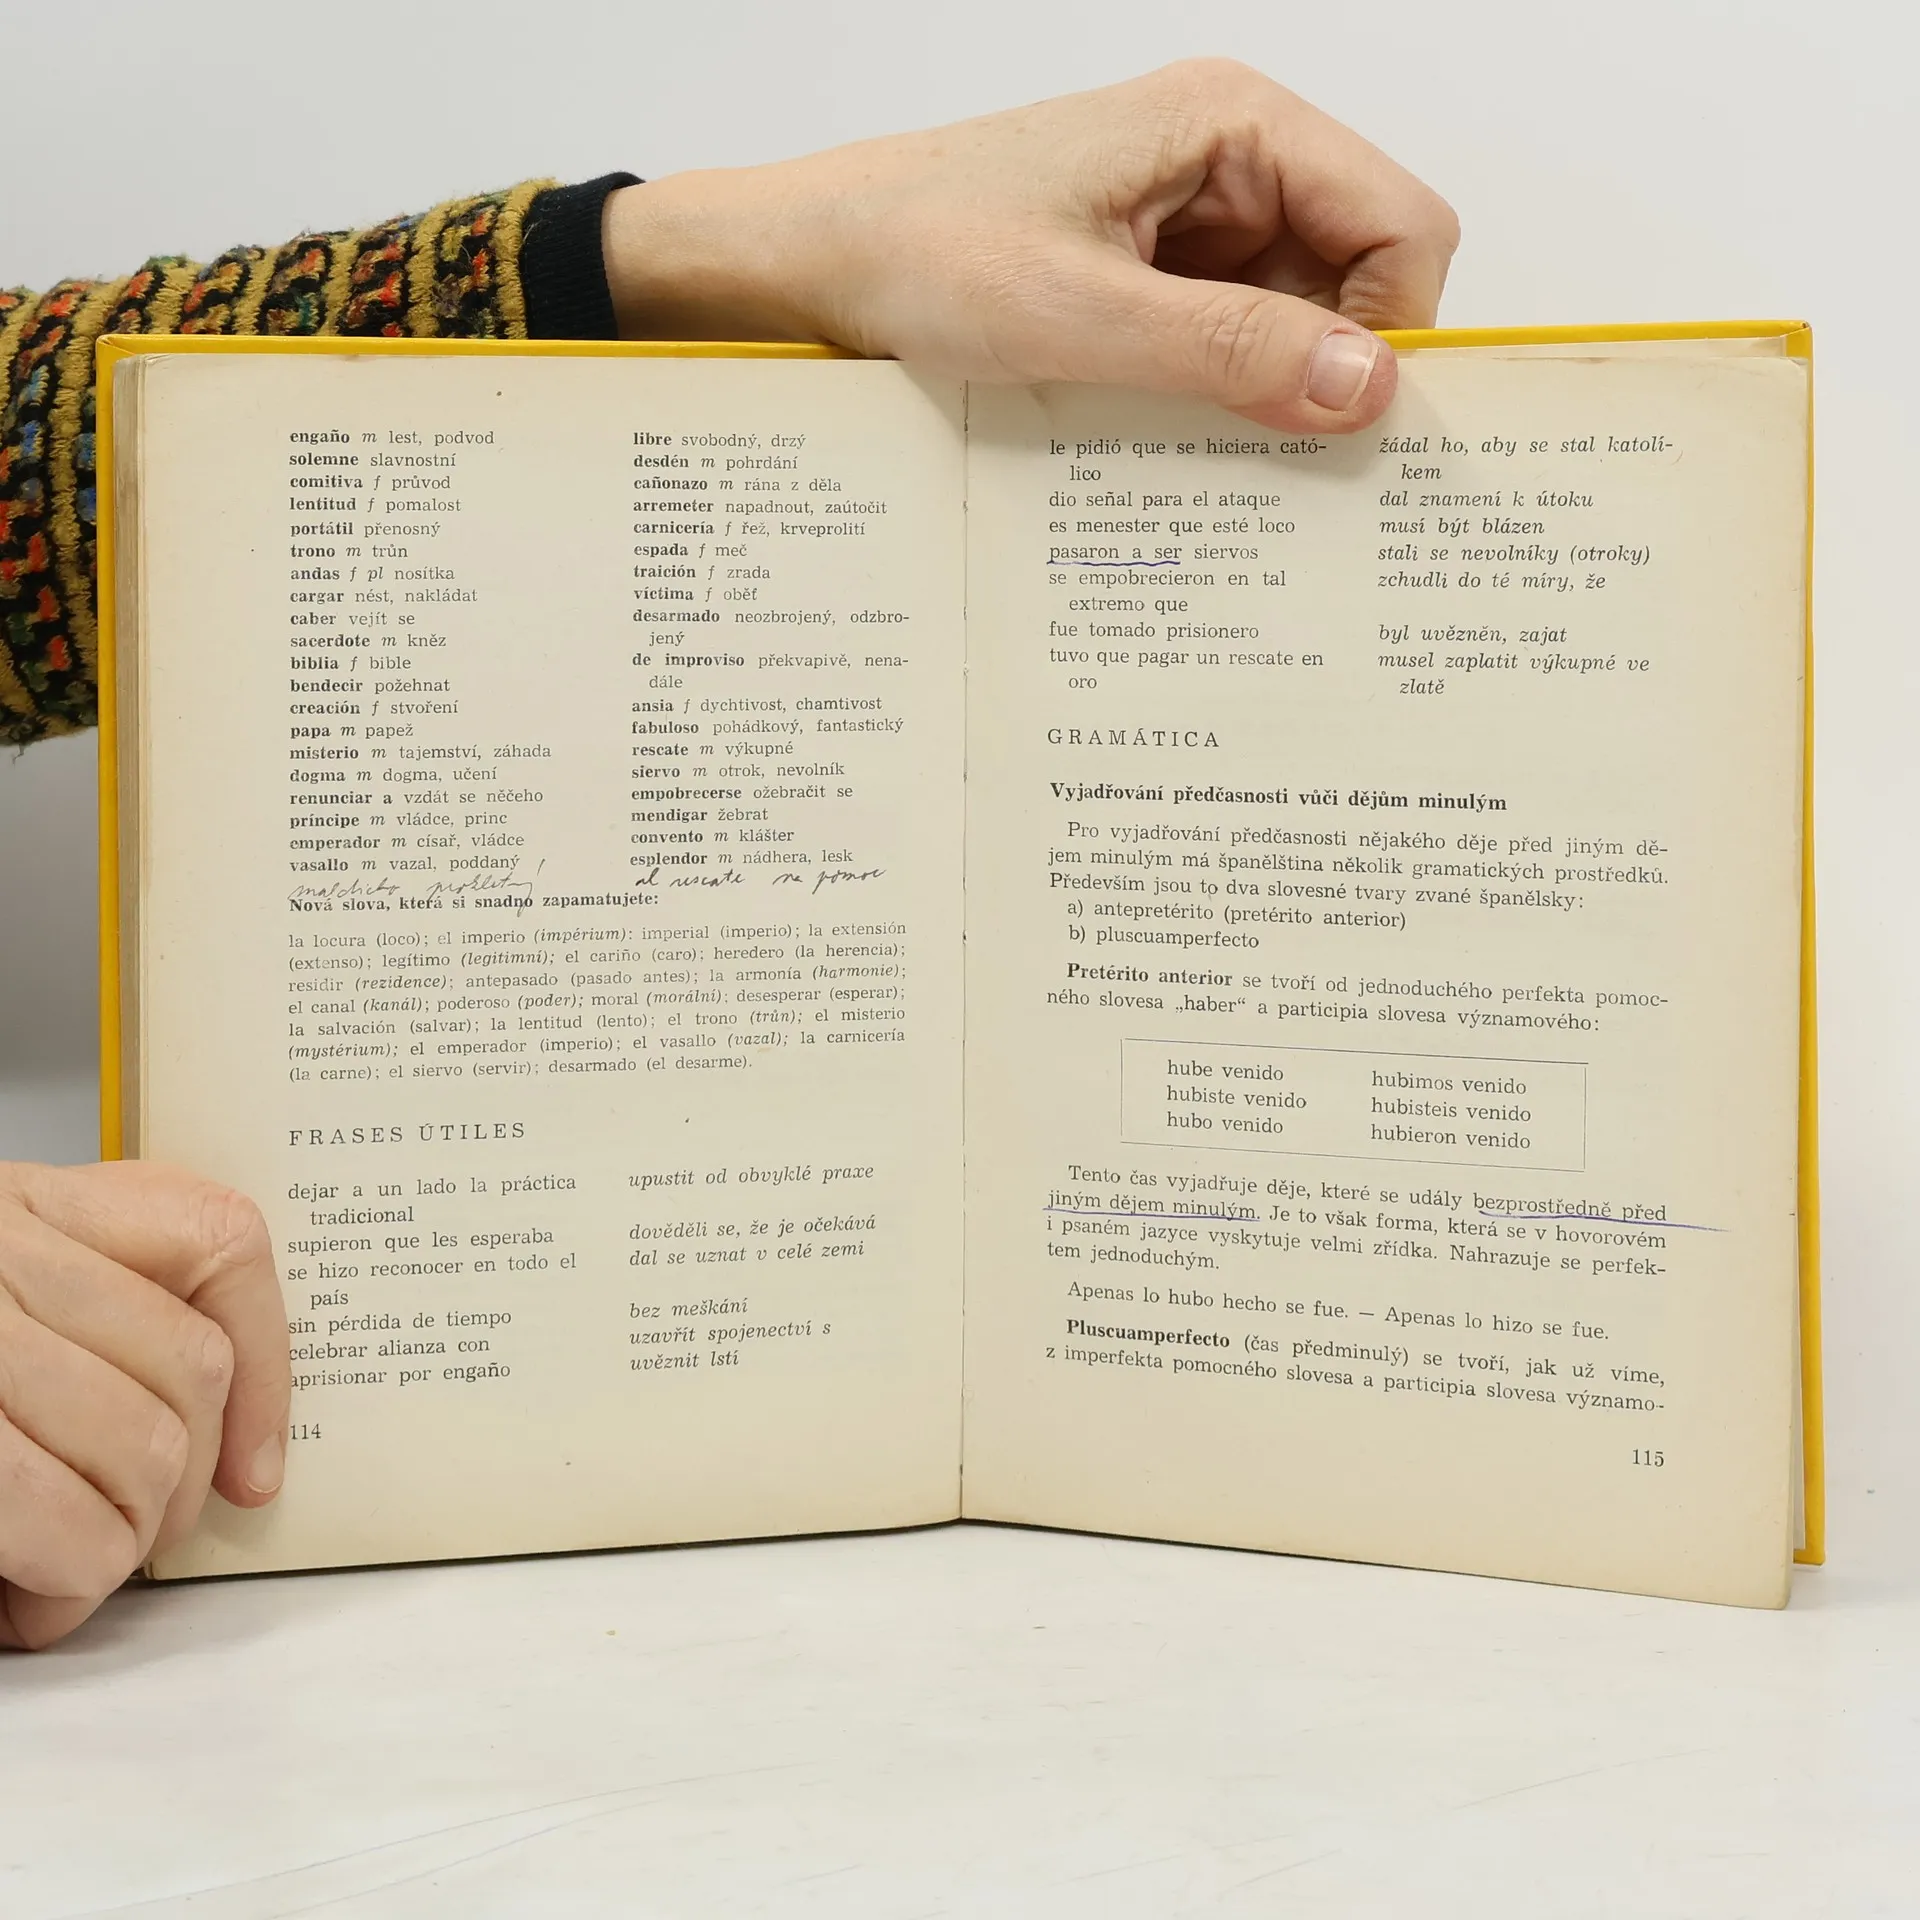 engaño m lest, podvod
solemne slavnostní
comitiva f průvod
lentitud f pomalost
portátil přenosný
trono m trůn
andas f pl nosítka
cargar nést, nakládat
caber vejít se
sacerdote m kněz
biblia f bible
bendecir požehnat
creación f stvoření
papa m papež
misterio m tajemství, záhada
dogma m dogma, učení
renunciar a vzdát se něčeho
príncipe m vládce, princ
emperador m císař, vládce
vasallo m vazal, poddaný
maldicho prokletý
libre svobodný, drzý
desdén m pohrdání
cañonazo m rána z děla
arremeter napadnout, zaútočit
carnicería f řež, krveprolití
espada f meč
traición f zrada
víctima f oběť
desarmado neozbrojený, odzbro-
jený
de improviso překvapivě, nena-
dále
ansia f dychtivost, chamtivost
fabuloso pohádkový, fantastický
rescate m výkupné
siervo m otrok, nevolník
empobrecerse ožebračit se
mendigar žebrat
convento m klášter
esplendor m nádhera, lesk
al rescate na pomoc
Nová slova, která si snadno zapamatujete:
la locura (loco); el imperio (impérium): imperial (imperio); la extensión
(extenso); legítimo (legitimní); el cariño (caro); heredero (la herencia);
residir (rezidence); antepasado (pasado antes); la armonía (harmonie);
el canal (kanál); poderoso (poder); moral (morální); desesperar (esperar);
la salvación (salvar); la lentitud (lento); el trono (trůn); el misterio
(mystérium); el emperador (imperio); el vasallo (vazal); la carnicería
(la carne); el siervo (servir); desarmado (el desarme).
FRASES ÚTILES
dejar a un lado la práctica
tradicional
supieron que les esperaba
se hizo reconocer en todo el
país
sin pérdida de tiempo
celebrar alianza con
aprisionar por engaño
upustit od obvyklé praxe
dověděli se, že je očekává
dal se uznat v celé zemi
bez meškání
uzavřít spojenectví s
uvěznit lstí
114
le pidió que se hiciera cató-
lico
dio señal para el ataque
es menester que esté loco
pasaron a ser siervos
se empobrecieron en tal
extremo que
fue tomado prisionero
tuvo que pagar un rescate en
oro
žádal ho, aby se stal katolí-
kem
dal znamení k útoku
musí být blázen
stali se nevolníky (otroky)
zchudli do té míry, že
byl uvězněn, zajat
musel zaplatit výkupné ve
zlatě
GRAMÁTICA
Vyjadřování předčasnosti vůči dějům minulým
Pro vyjadřování předčasnosti nějakého děje před jiným dě-
jem minulým má španělština několik gramatických prostředků.
Především jsou to dva slovesné tvary zvané španělsky:
a) antepretérito (pretérito anterior)
b) pluscuamperfecto
Pretérito anterior se tvoří od jednoduchého perfekta pomoc-
ného slovesa „haber“ a participia slovesa významového:
hube venido
hubiste venido
hubo venido
hubimos venido
hubisteis venido
hubieron venido
Tento čas vyjadřuje děje, které se udály bezprostředně před
jiným dějem minulým. Je to však forma, která se v hovorovém
i psaném jazyce vyskytuje velmi zřídka. Nahrazuje se perfek-
tem jednoduchým.
Apenas lo hubo hecho se fue. — Apenas lo hizo se fue.
Pluscuamperfecto (čas předminulý) se tvoří, jak už víme,
z imperfekta pomocného slovesa a participia slovesa významo-
115